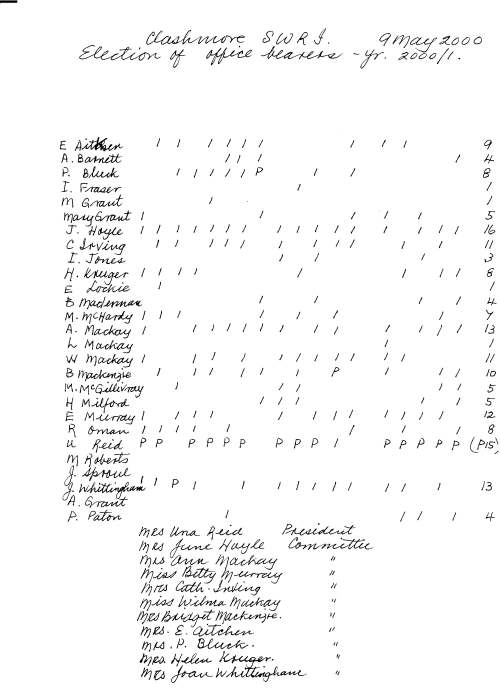 Clashmore SWRI. 9 May 2000
Election of office bearers - yr. 2000/1.
E Aitken / / / / / / / / / 9
A. Barnett / / / / 4
P. Bluck / / / / / P / / 8
I. Fraser / 1
M Grant / 1
Mary Grant / / / / / 5
J. Hoyle / / / / / / / / / / / / / / / / / / 16
C Irving / / / / / / / / / / / 11
I. Jones / / / 3
H. Kruger / / / / / / / / 8
E Lockie / 1
B Maclennan / / / / 4
M. McHardy / / / / / / / 7
A. Mackay / / / / / / / / / / / / / 13
L Mackay / 1
W Mackay / / / / / / / / / / / 11
B Mackenzie / / / / / / / P / / 10
M. McGillivray / / / / / 5
H Milford / / / / / 5
E Murray / / / / / / / / / / / / 12
R Oman / / / / / / / / 8
U Reid P P P P P P P P / P P P P P (P15)
M Roberts
J. Sproul
J. Whittingham / P / / / / / / / / / / / 13
A. Grant
P. Paton / / / / 4
Mrs Una Reid President
Mrs June Hoyle Committee
Mrs Ann Mackay "
Miss Betty Murray "
Mrs Cath. Irving "
Miss Wilma Mackay "
Mrs Bridget Mackenzie. "
Mrs. E. Aitchen "
Mrs. P. Bluck. "
Mrs. Helen Kruger. "
Mrs Joan Whittingham "